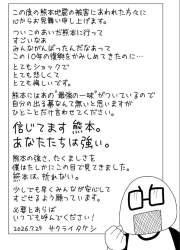 この度の熊本地震の被害にあわれた方々に
心からお見舞い申し上げます。
ついこのあいだ熊本に行って
すごいなあ
みんながんばったんだなあって
この10年の復興をかみしめてきたのに…
とてもショックで
とても悲しくて
とても悔しいです。
熊本にはあの"最強の一味"がついているので
自分の出る幕なんて無いと思いますが
ひとことだけ言わせてください。
信じてます熊本。
あなたたちは強い。
熊本の強さ、たくましさを
僕はたしかにこの目で見てきました。
熊本は、折れない。
少しでも早くみんなが安心して
すごせるよう願っています。
必要とあらば
いつでも呼んでください!
2026.7.29 サクライタケシ